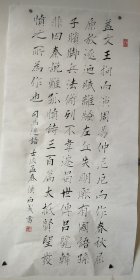 蓋文王拘而演周易仲尼厄而作春秋屈
原放逐乃賦離騷左丘失明厥有國語孫
子臏脚兵法修列不韋遷蜀世傳呂覽韓
非囚秦說難孤憤詩三百篇大抵聖賢發
憤之所為作也 司馬遷語 孟春 書